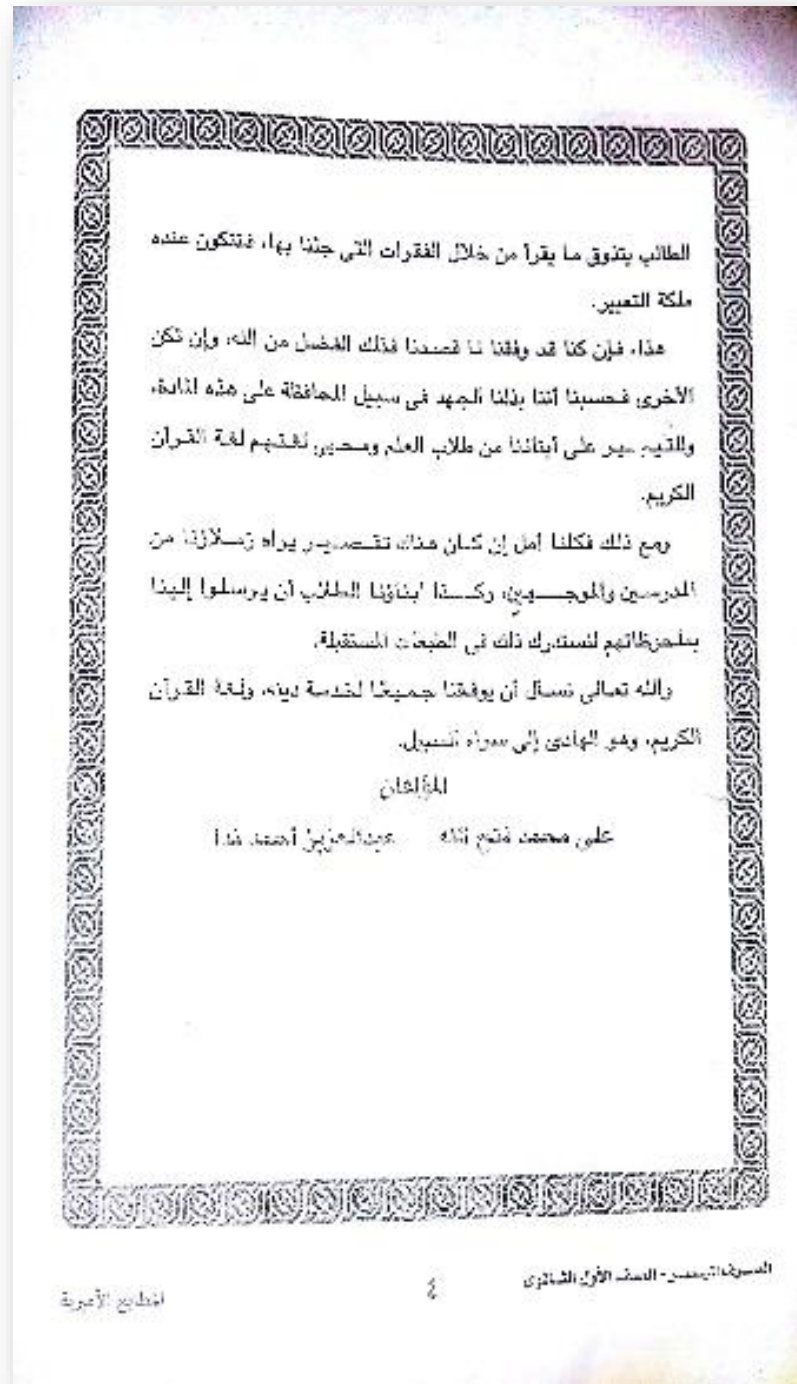 الطالب يتذوق ما يقرأ من خلال الفقرات التى جئنا بها، فتتكون عنده
ملكة التعبير.
هذا، فإن كنا قد وفقنا لما قصدنا فذلك الفضل من الله، وإن تكن
الأخرى فحسبنا أننا بذلنا الجهد فى سبيل المحافظة على هذه المادة،
والتيسير على أبنائنا من طلاب العلم ومحبى لغتهم لغة القرآن
الكريم.
ومع ذلك فكلنا أمل إن كان هناك تقصير يراه زملاؤنا من
المدرسين والموجهين، وكذا أبناؤنا الطلاب أن يرسلوا إلينا
بملحوظاتهم لنستدرك ذلك فى الطبعات المستقبلة.
والله تعالى نسأل أن يوفقنا جميعًا لخدمة دينه، ولغة القرآن
الكريم، وهو الهادى إلى سواء السبيل.
المؤلفان
على محمد فتح الله عبدالعزيز أحمد
الصرف الميسر - الصف الأول الثانوى
٤
المطابع الأميرية